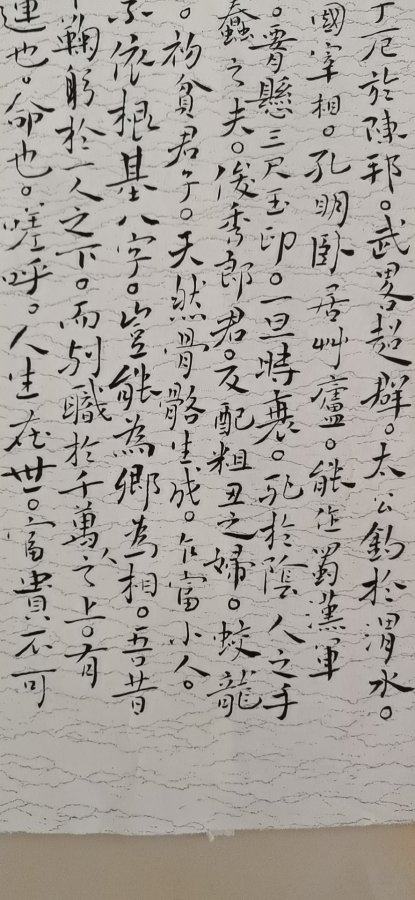 厄於陳邦。武畧超群。太公釣於渭水。
國宰相。孔明臥居艸廬。能作蜀漢軍
。腰懸三尺玉印。一旦時衰。死於陰人之手
蠢之夫。俊秀郎君。反配粗丑之婦。蛟龍
。初貧君子。天然骨骼生成。乍富小人。
不依根基八字。豈能為卿為相。吾昔
鞠躬於一人之下。而列職於千萬人之上。有
運也。命也。嗟呼。人生在世。富貴不可